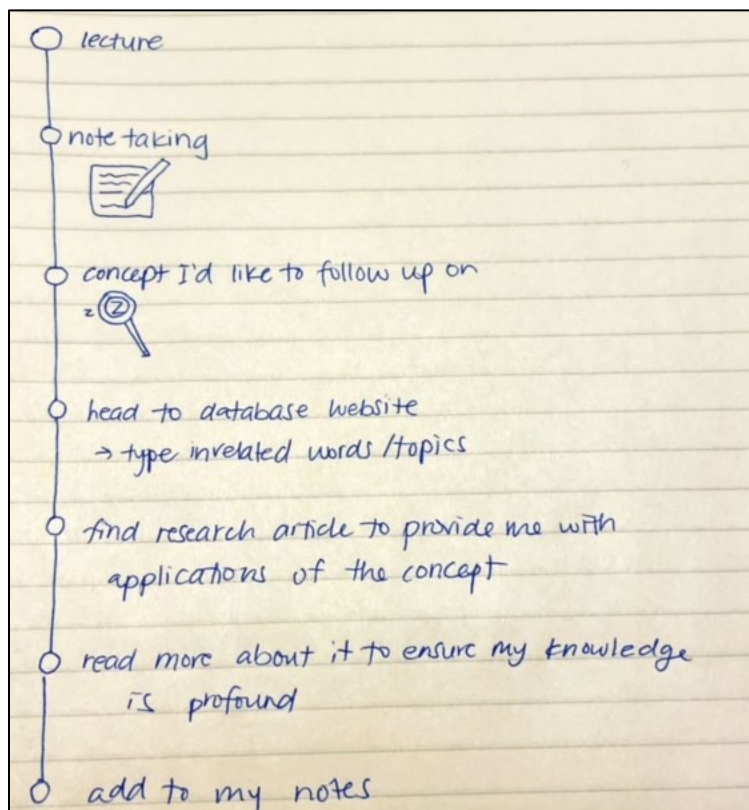 lecture
note taking
concept I'd like to follow up on
z Z
head to database website
→ type in related words/topics
find research article to provide me with
applications of the concept
read more about it to ensure my knowledge
is profound
add to my notes